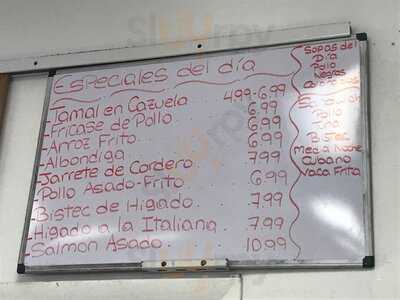 Especiales del día
-Tamal en Cazuela 4.99-6.99
-Fricase de Pollo 6.99
-Arroz Frito 6.99
-Albondiga 6.99
-Jarrete de Cordero 7.99
-Pollo Asado-Frito 6.99
-Bistec de Higado 7.99
-Higado a la Italiana 7.99
-Salmon Asado 10.99
Sopas del
Día
Pollo
Negras
Sandwich
Pollo
Bistec
Media Noche
Cubano
Vaca Frita